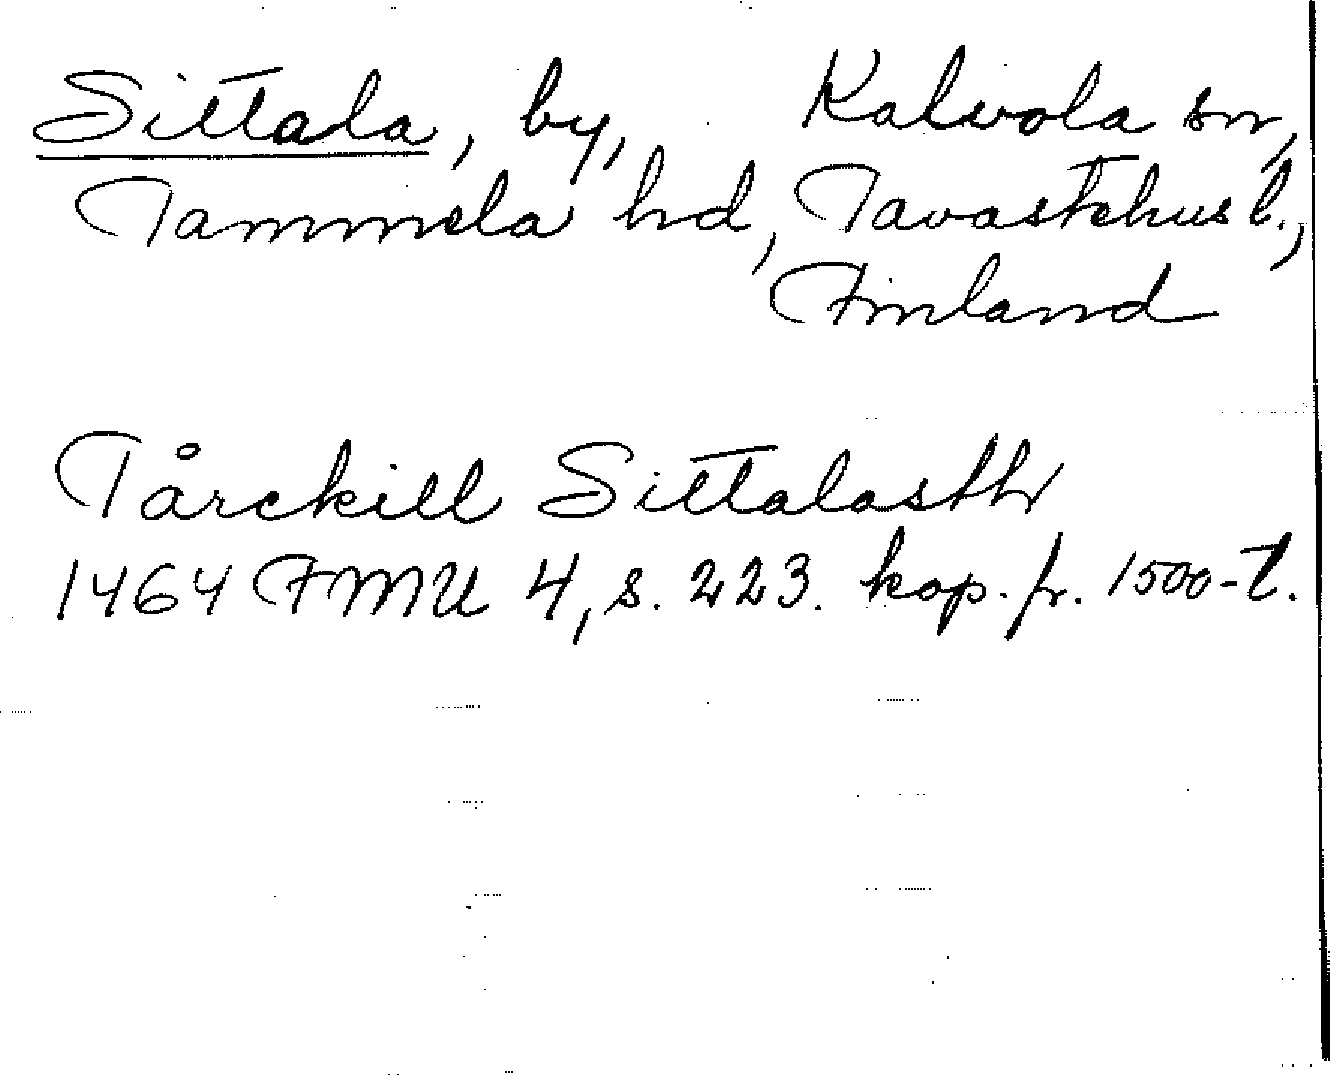 Sittala, by, Kalvola sn,
Tammela hd, Tavastehus l.,
Finland
Tårckill Sittalasth
1464 FMU 4, s. 223. kop. fr. 1500-t.